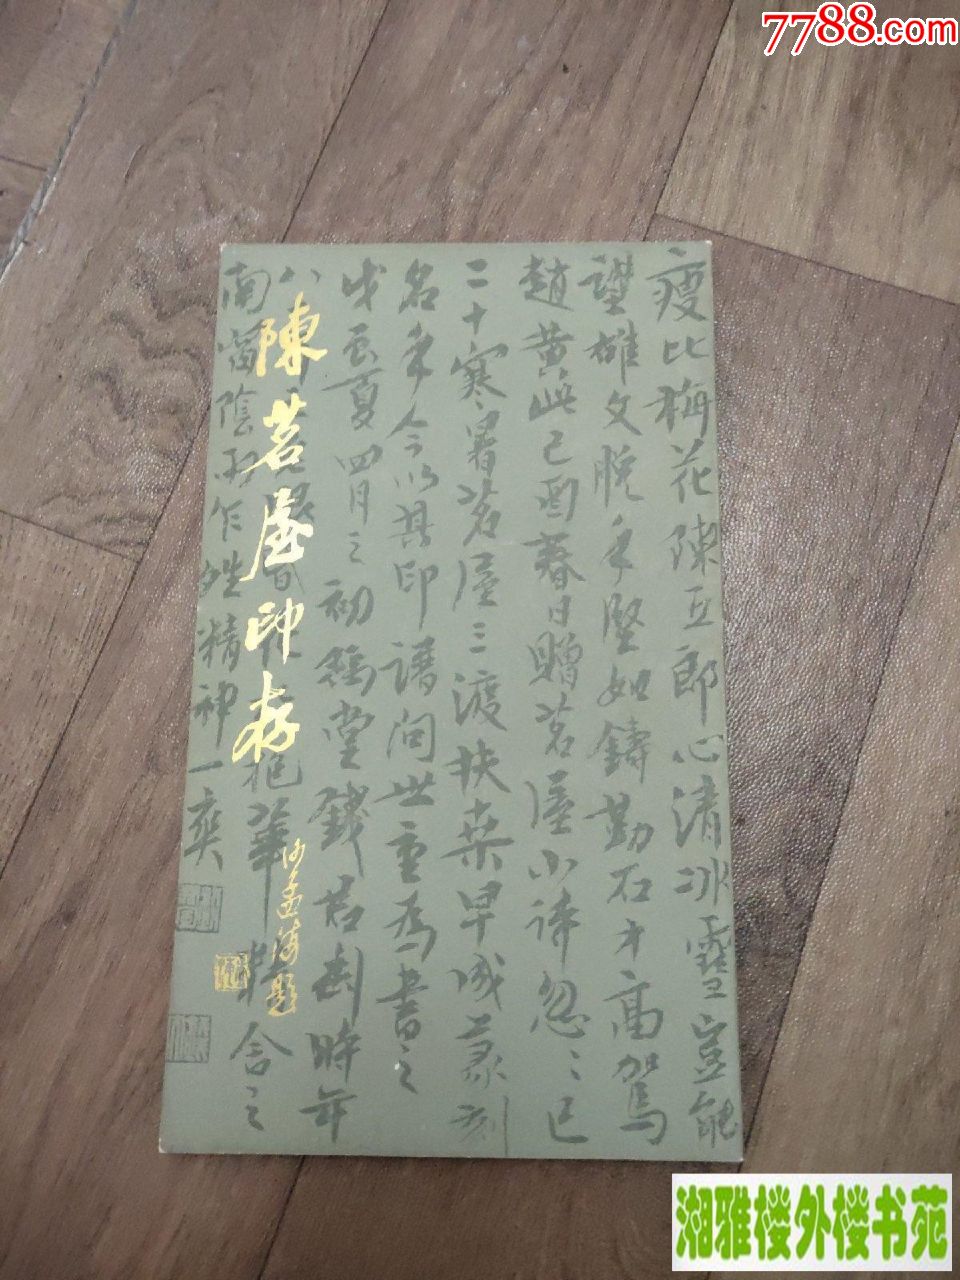 7788.com
瘦比梅花陳五郎心清冰雪豈能
讚雄文脫手堅如鑄勒石才高駕
趙黃此己酉春日贈茗屋小詩忽忽已
二十寒暑茗屋三渡扶桑早成篆刻
名手今以其印譜問世重為書之
戊辰夏四月之初鶴堂錢君匋時年
八
抱華精舍之
南窗陰雨乍晴精神一爽
陳茗屋印存
沙孟海題
湘雅楼外楼书苑